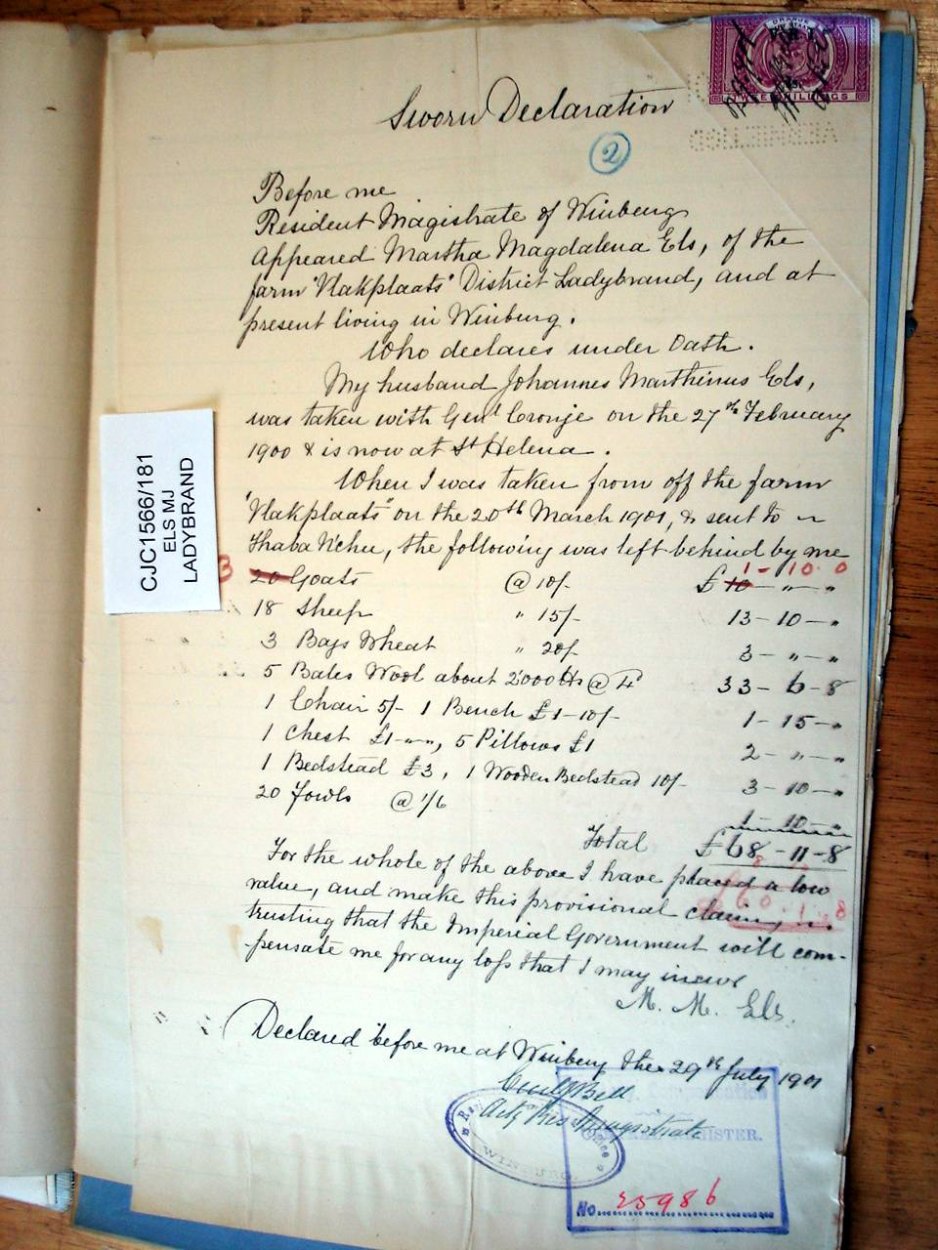 SHILLINGS
Sworn Declaration
2
Before me
Resident Magistrate of Winburg
Appeared Martha Magdalena Els, of the
farm "Vlakplaats" District Ladybrand, and at
present living in Winburg.
Who declares under Oath.
My husband Johannes Marthinus Els,
was taken with Genl Cronje on the 27th February
1900 & is now at St Helena.
When I was taken from off the farm
"Vlakplaats" on the 20th March 1901, & sent to
Thaba Nchu, the following was left behind by me
3 20 Goats @ 10/- £ 10 - " - " 1 - 10 - 0
18 Sheep " 15/- 13 - 10 - "
3 Bags Wheat " 20/- 3 - " - "
5 Bales Wool about 2000 lbs @ 4d 33 - 6 - 8
1 Chair 5/- 1 Bench £1-10/- 1 - 15 - "
1 Chest £1-"-", 5 Pillows £1 2 - " - "
1 Bedstead £3, 1 Wooden Bedstead 10/- 3 - 10 - "
20 Fowls @ 1/6 1 - 10 - "
Total £68 - 11 - 8
For the whole of the above I have placed a low
value, and make this provisional claim,
60 . 1 . 8
trusting that the Imperial Government will com-
pensate me for any loss that I may incur
M. M. Els.
Declared before me at Winburg the 29th July 1901
Bell
Actg Res Magistrate
WINBURG
No. 25986
CJC1566/181
ELS MJ
LADYBRAND